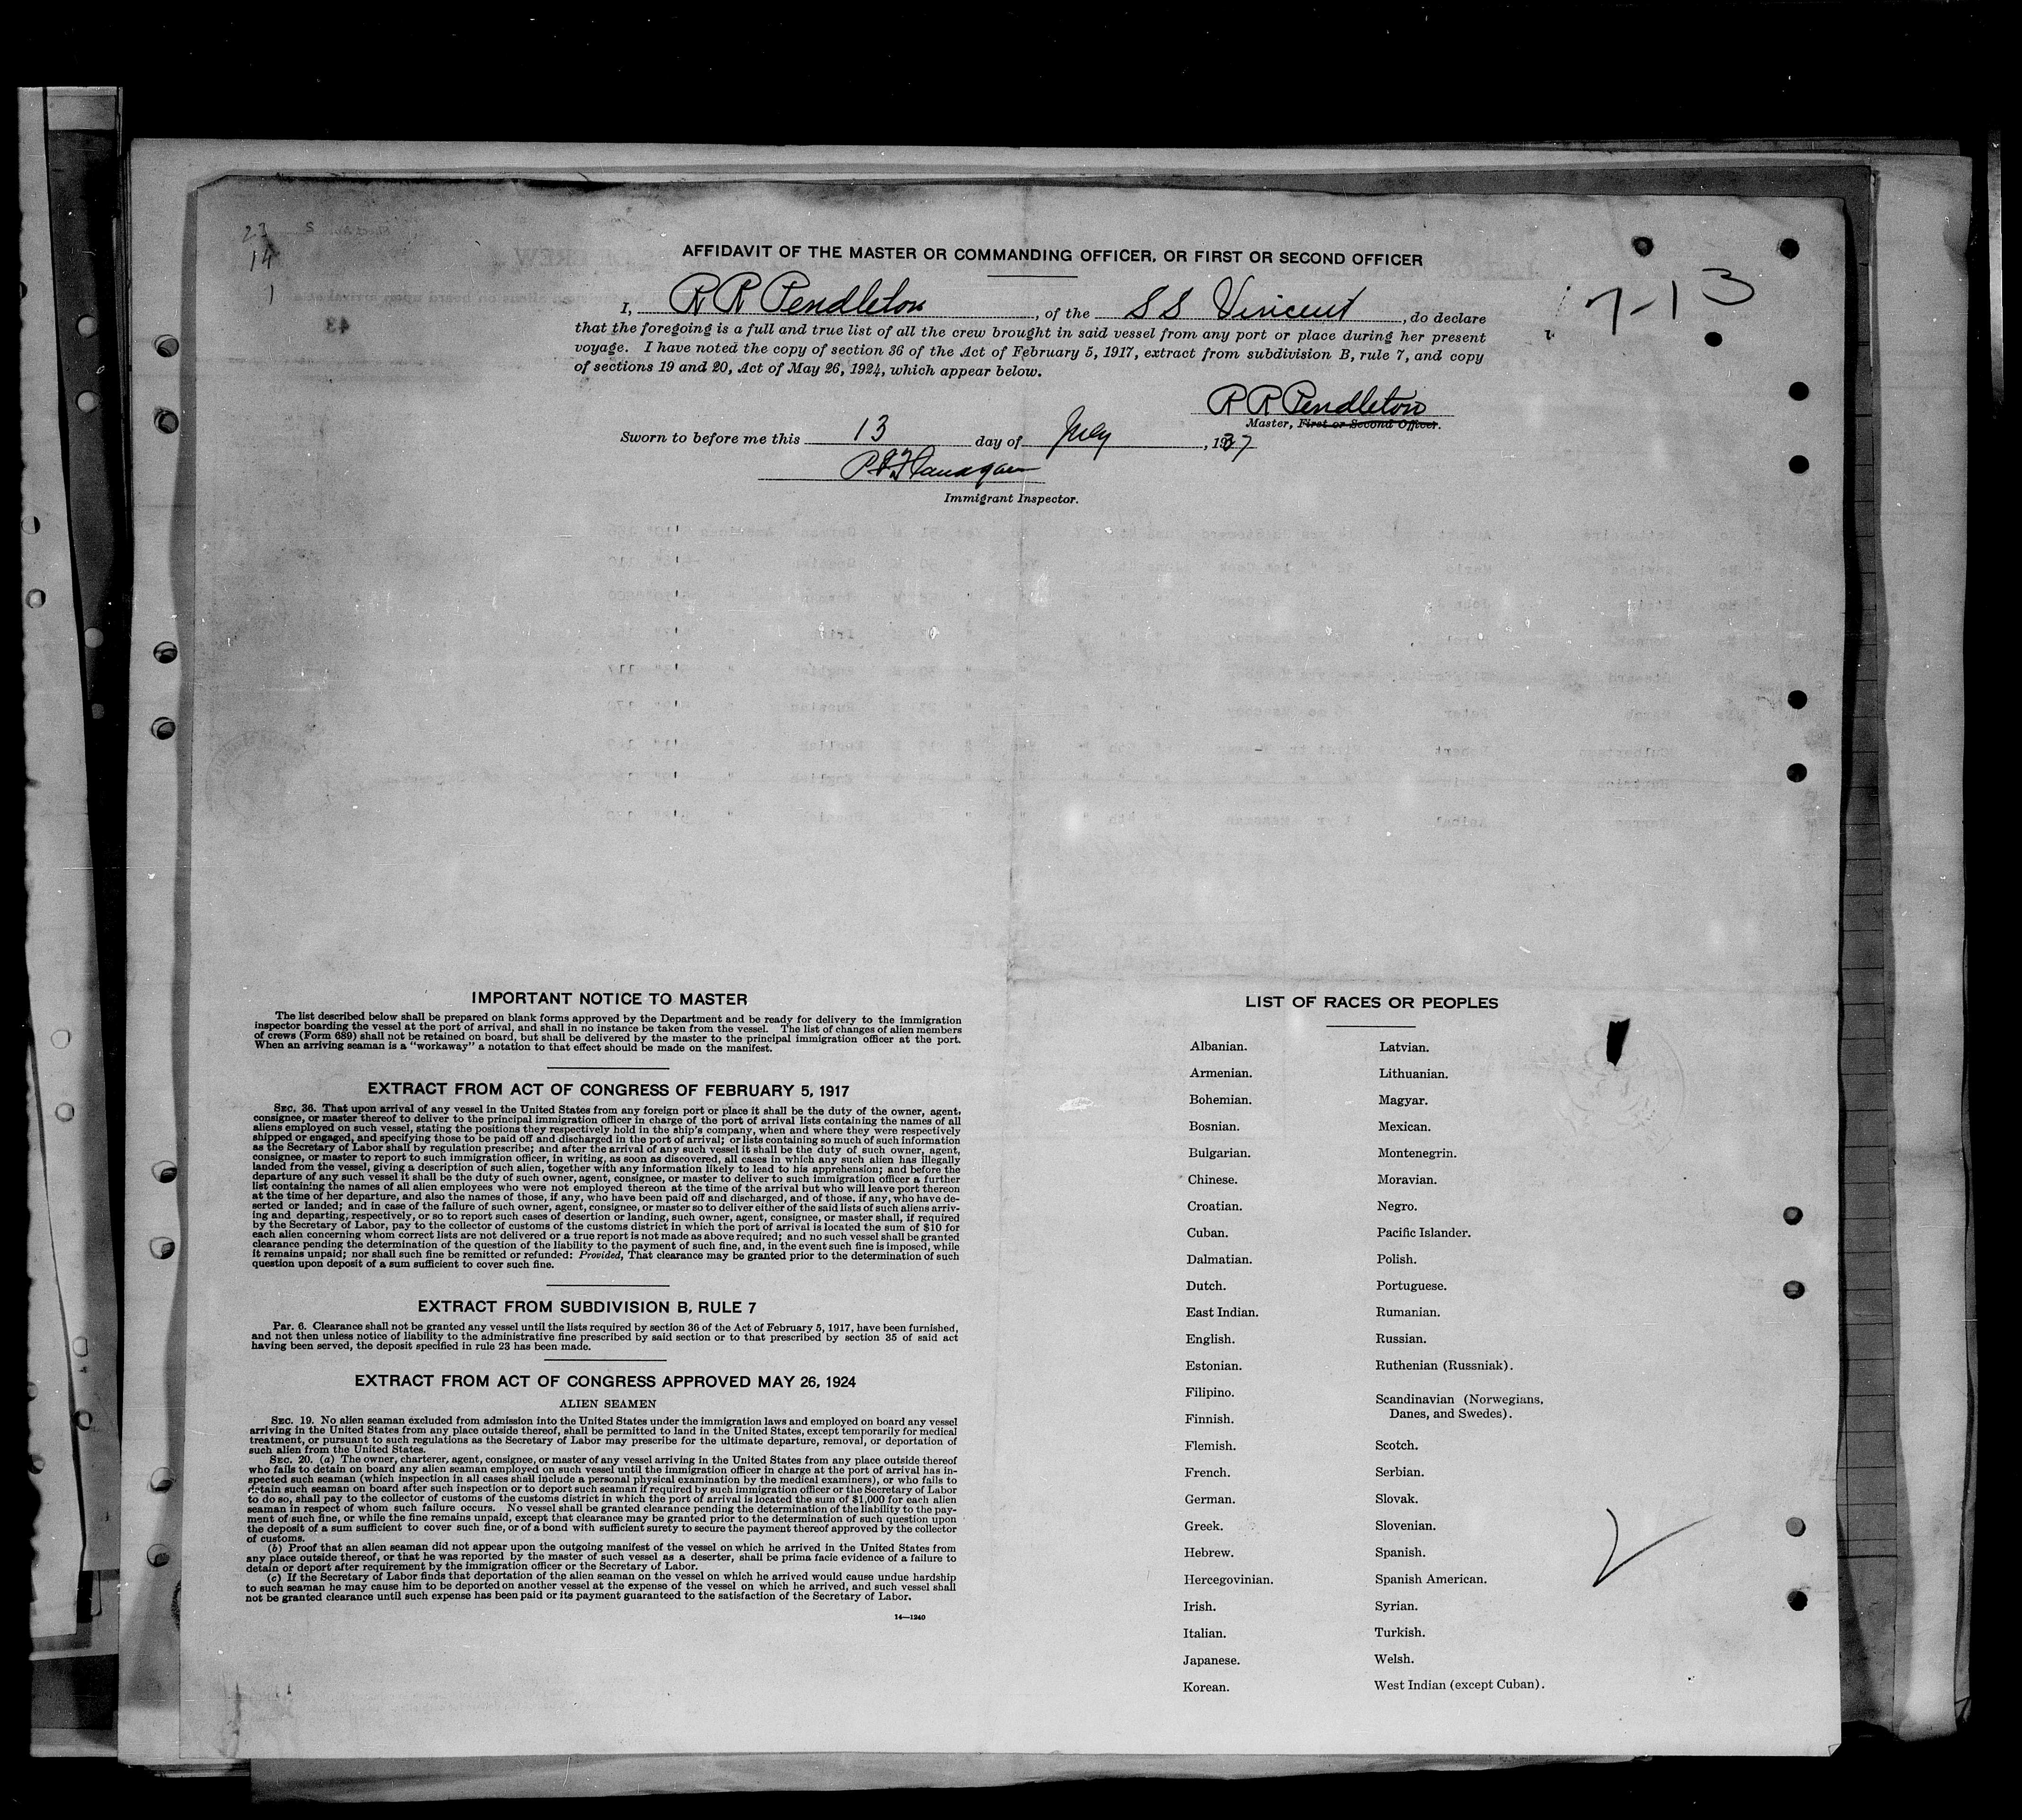 23
14
1
AFFIDAVIT OF THE MASTER OR COMMANDING OFFICER, OR FIRST OR SECOND OFFICER
7-13
I, R R Pendleton, of the S S Vincent, do declare
that the foregoing is a full and true list of all the crew brought in said vessel from any port or place during her present
voyage. I have noted the copy of section 36 of the Act of February 5, 1917, extract from subdivision B, rule 7, and copy
of sections 19 and 20, Act of May 26, 1924, which appear below.
R R Pendleton
Master, First or Second Officer.
Sworn to before me this 13 day of July, 1937
Flanagan
Immigrant Inspector.
IMPORTANT NOTICE TO MASTER
The list described below shall be prepared on blank forms approved by the Department and be ready for delivery to the immigration
inspector boarding the vessel at the port of arrival, and shall in no instance be taken from the vessel. The list of changes of alien members
of crews (Form 689) shall not be retained on board, but shall be delivered by the master to the principal immigration officer at the port.
When an arriving seaman is a "workaway" a notation to that effect should be made on the manifest.
EXTRACT FROM ACT OF CONGRESS OF FEBRUARY 5, 1917
SEC. 36. That upon arrival of any vessel in the United States from any foreign port or place it shall be the duty of the owner, agent,
consignee, or master thereof to deliver to the principal immigration officer in charge of the port of arrival lists containing the names of all
aliens employed on such vessel, stating the positions they respectively hold in the ship's company, when and where they were respectively
shipped or engaged, and specifying those to be paid off and discharged in the port of arrival; or lists containing so much of such information
as the Secretary of Labor shall by regulation prescribe; and after the arrival of any such vessel it shall be the duty of such owner, agent,
consignee, or master to report to such immigration officer, in writing, as soon as discovered, all cases in which any such alien has illegally
landed from the vessel, giving a description of such alien, together with any information likely to lead to his apprehension; and before the
departure of any such vessel it shall be the duty of such owner, agent, consignee, or master to deliver to such immigration officer a further
list containing the names of all alien employees who were not employed thereon at the time of the arrival but who will leave port thereon
at the time of her departure, and also the names of those, if any, who have been paid off and discharged, and of those, if any, who have de-
serted or landed; and in case of the failure of such owner, agent, consignee, or master so to deliver either of the said lists of such aliens arriv-
ing and departing, respectively, or so to report such cases of desertion or landing, such owner, agent, consignee, or master shall, if required
by the Secretary of Labor, pay to the collector of customs of the customs district in which the port of arrival is located the sum of $10 for
each alien concerning whom correct lists are not delivered or a true report is not made as above required; and no such vessel shall be granted
clearance pending the determination of the question of the liability to the payment of such fine, and, in the event such fine is imposed, while
it remains unpaid; nor shall such fine be remitted or refunded: Provided, That clearance may be granted prior to the determination of such
question upon deposit of a sum sufficient to cover such fine.
EXTRACT FROM SUBDIVISION B, RULE 7
PAR. 6. Clearance shall not be granted any vessel until the lists required by section 36 of the Act of February 5, 1917, have been furnished,
and not then unless notice of liability to the administrative fine prescribed by said section or to that prescribed by section 35 of said act
having been served, the deposit specified in rule 23 has been made.
EXTRACT FROM ACT OF CONGRESS APPROVED MAY 26, 1924
ALIEN SEAMEN
SEC. 19. No alien seaman excluded from admission into the United States under the immigration laws and employed on board any vessel
arriving in the United States from any place outside thereof, shall be permitted to land in the United States, except temporarily for medical
treatment, or pursuant to such regulations as the Secretary of Labor may prescribe for the ultimate departure, removal, or deportation of
such alien from the United States.
SEC. 20. (a) The owner, charterer, agent, consignee, or master of any vessel arriving in the United States from any place outside thereof
who fails to detain on board any alien seaman employed on such vessel until the immigration officer in charge at the port of arrival has in-
spected such seaman (which inspection in all cases shall include a personal physical examination by the medical examiners), or who fails to
detain such seaman on board after such inspection or to deport such seaman if required by such immigration officer or the Secretary of Labor
to do so, shall pay to the collector of customs of the customs district in which the port of arrival is located the sum of $1,000 for each alien
seaman in respect of whom such failure occurs. No vessel shall be granted clearance pending the determination of the liability to the pay-
ment of such fine, or while the fine remains unpaid, except that clearance may be granted prior to the determination of such question upon
the deposit of a sum sufficient to cover such fine, or of a bond with sufficient surety to secure the payment thereof approved by the collector
of customs.
(b) Proof that an alien seaman did not appear upon the outgoing manifest of the vessel on which he arrived in the United States from
any place outside thereof, or that he was reported by the master of such vessel as a deserter, shall be prima facie evidence of a failure to
detain or deport after requirement by the immigration officer or the Secretary of Labor.
(c) If the Secretary of Labor finds that deportation of the alien seaman on the vessel on which he arrived would cause undue hardship
to such seaman he may cause him to be deported on another vessel at the expense of the vessel on which he arrived, and such vessel shall
not be granted clearance until such expense has been paid or its payment guaranteed to the satisfaction of the Secretary of Labor.
14—1240
LIST OF RACES OR PEOPLES
Albanian.
Armenian.
Bohemian.
Bosnian.
Bulgarian.
Chinese.
Croatian.
Cuban.
Dalmatian.
Dutch.
East Indian.
English.
Estonian.
Filipino.
Finnish.
Flemish.
French.
German.
Greek.
Hebrew.
Hercegovinian.
Irish.
Italian.
Japanese.
Korean.
Latvian.
Lithuanian.
Magyar.
Mexican.
Montenegrin.
Moravian.
Negro.
Pacific Islander.
Polish.
Portuguese.
Rumanian.
Russian.
Ruthenian (Russniak).
Scandinavian (Norwegians,
Danes, and Swedes).
Scotch.
Serbian.
Slovak.
Slovenian.
Spanish.
Spanish American.
Syrian.
Turkish.
Welsh.
West Indian (except Cuban).